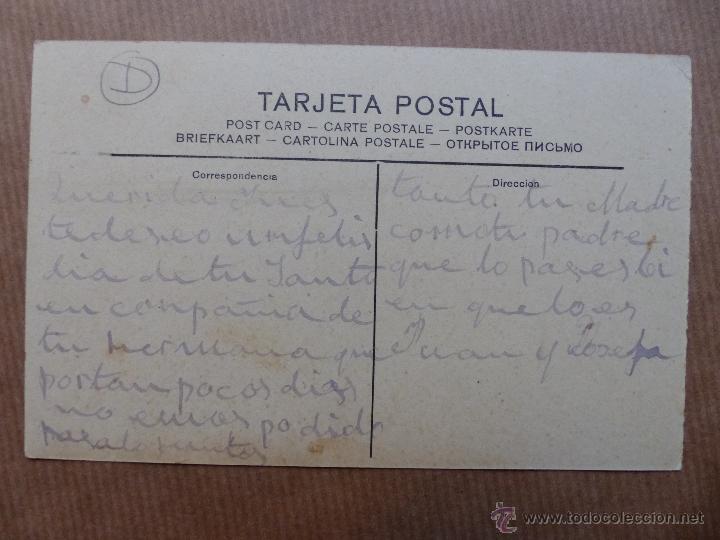 D
TARJETA POSTAL
POST CARD — CARTE POSTALE — POSTKARTE
BRIEFKAART — CARTOLINA POSTALE — ОТКРЫТОЕ ПИСЬМО
Correspondencia
Querida Ynes
te deseo un felis
dia de tu Santo
en conpañia de
tu hermana que
por tan pocos dias
no emos podido
pasalo juntos
Direccion
tanto tu Madre
como tu padre
que lo pases bi
en que lo es
Juan y Josefa
www.todocoleccion.net